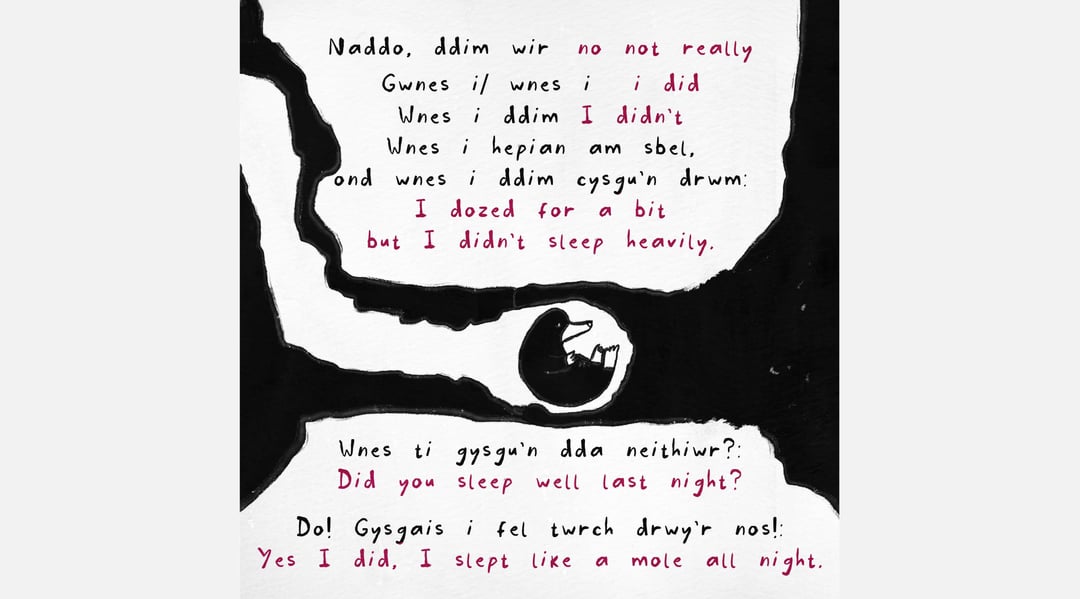 Naddo, ddim wir no not really
Gwnes i/ wnes i i did
Wnes i ddim I didn't
Wnes i hepian am sbel,
ond wnes i ddim cysgu'n drwm:
I dozed for a bit
but I didn't sleep heavily.
Wnes ti gysgu'n dda neithiwr?:
Did you sleep well last night?
Do! Gysgais i fel twrch drwy'r nos!:
Yes I did, I slept like a mole all night.